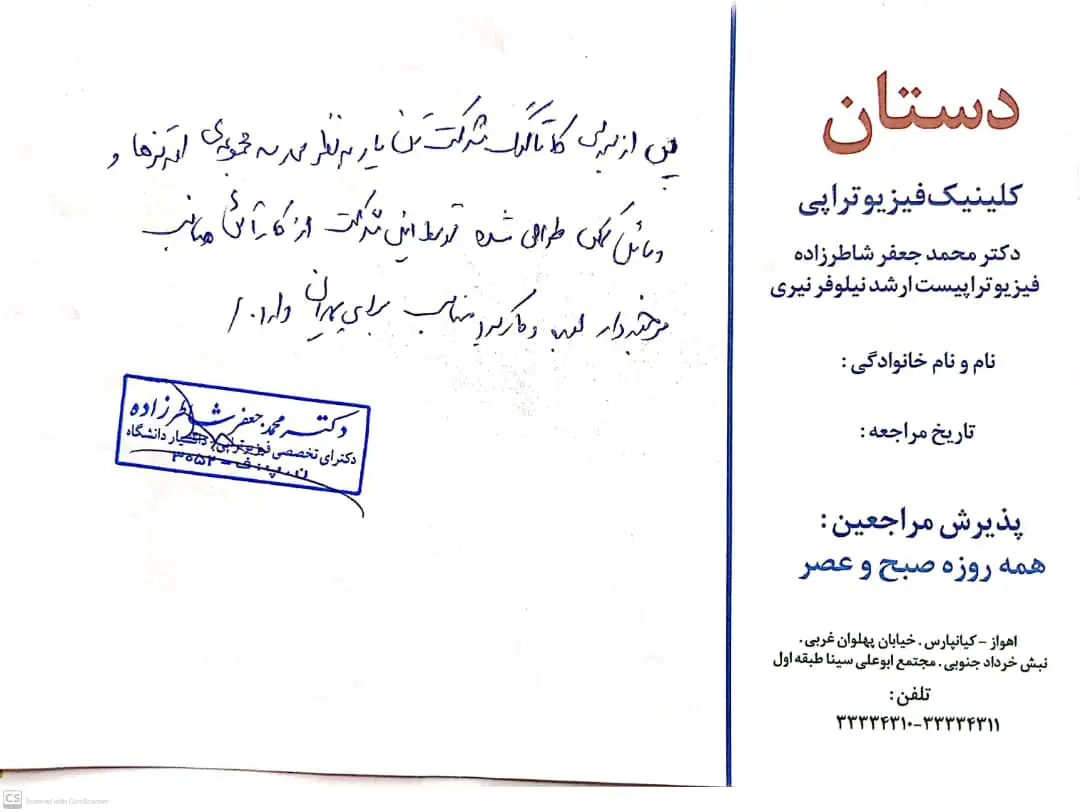 دستان
کلینیک فیزیوتراپی
دکتر محمد جعفر شاطرزاده
فیزیوتراپیست ارشد نیلوفر نیری
نام و نام خانوادگی :
تاریخ مراجعه :
پذیرش مراجعین :
همه روزه صبح و عصر
اهواز - کیانپارس . خیابان پهلوان غربی .
نبش خرداد جنوبی . مجتمع ابوعلی سینا طبقه اول
تلفن :
۳۳۳۳۴۳۱۰-۳۳۳۳۴۳۱۱
پس از بررسی کاتالوگ شرکت تن یار به نظر می رسد مجموعه‌ی ارتزها و
وسائل کمکی طراحی شده توسط این شرکت از کارآئی مناسب
برخوردار و کاربرد مناسب برای بیماران دارد. /
دکتر محمد جعفر شاطرزاده
دکترای تخصصی فیزیوتراپی دانشیار دانشگاه
ن.پ ف - ۳۰۵۲
CS Scanned with CamScanner